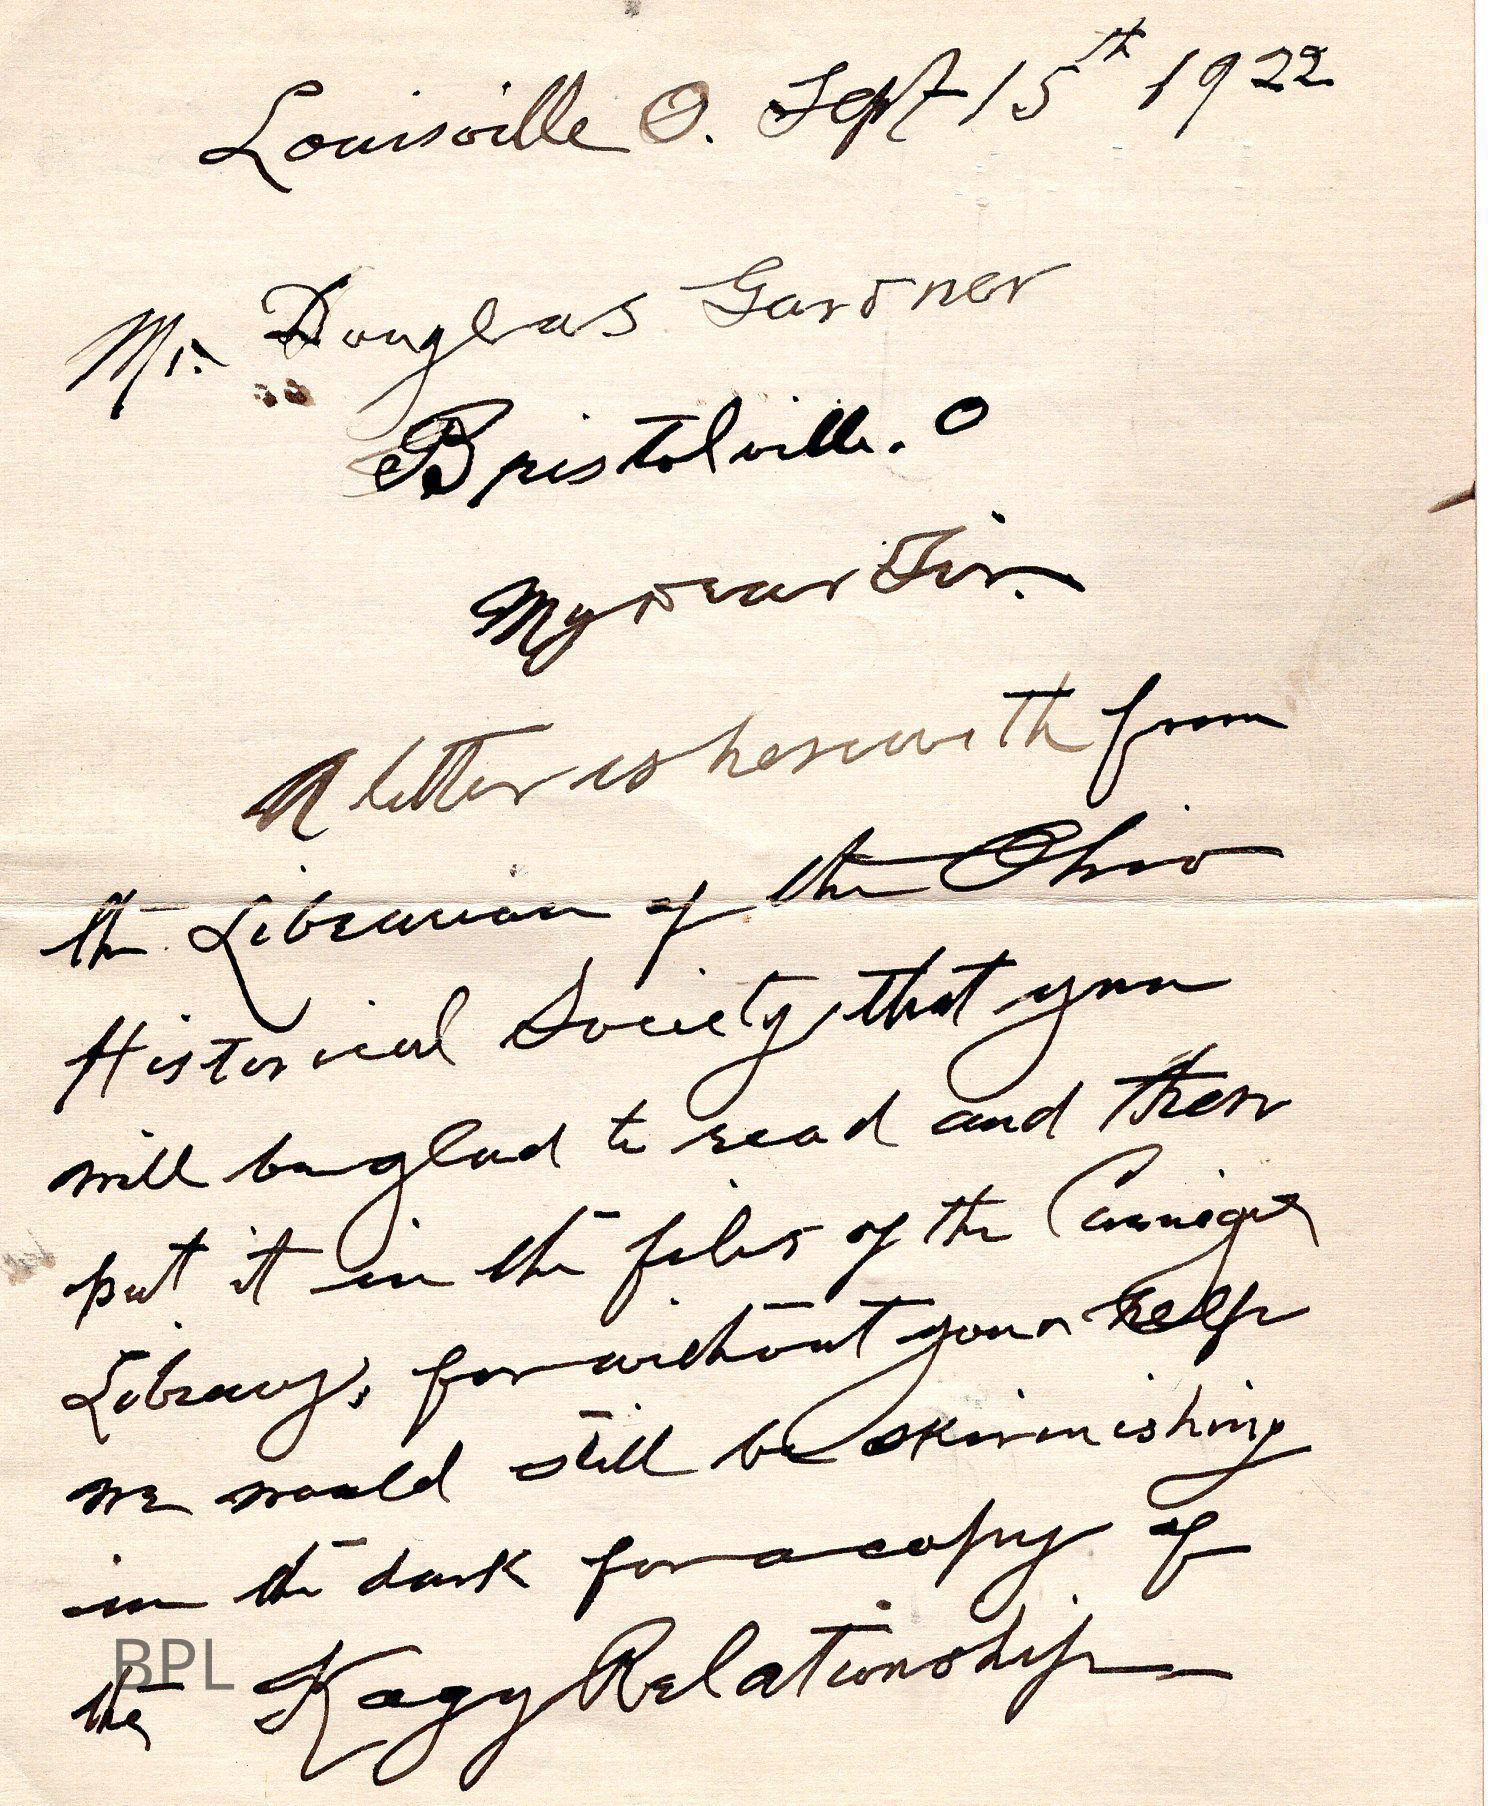 Louisville O. Sept 15th 1922
Mr. Douglas Gardner
Bristolville. O
My dear Sir.
A letter is herewith from
the Librarian of the Ohio
Historical Society that you
will be glad to read and then
put it in the files of the Carnegie
Library, for without your help
we would still be skirmishing
in the dark for a copy of
BPL
the Kagy Relationship